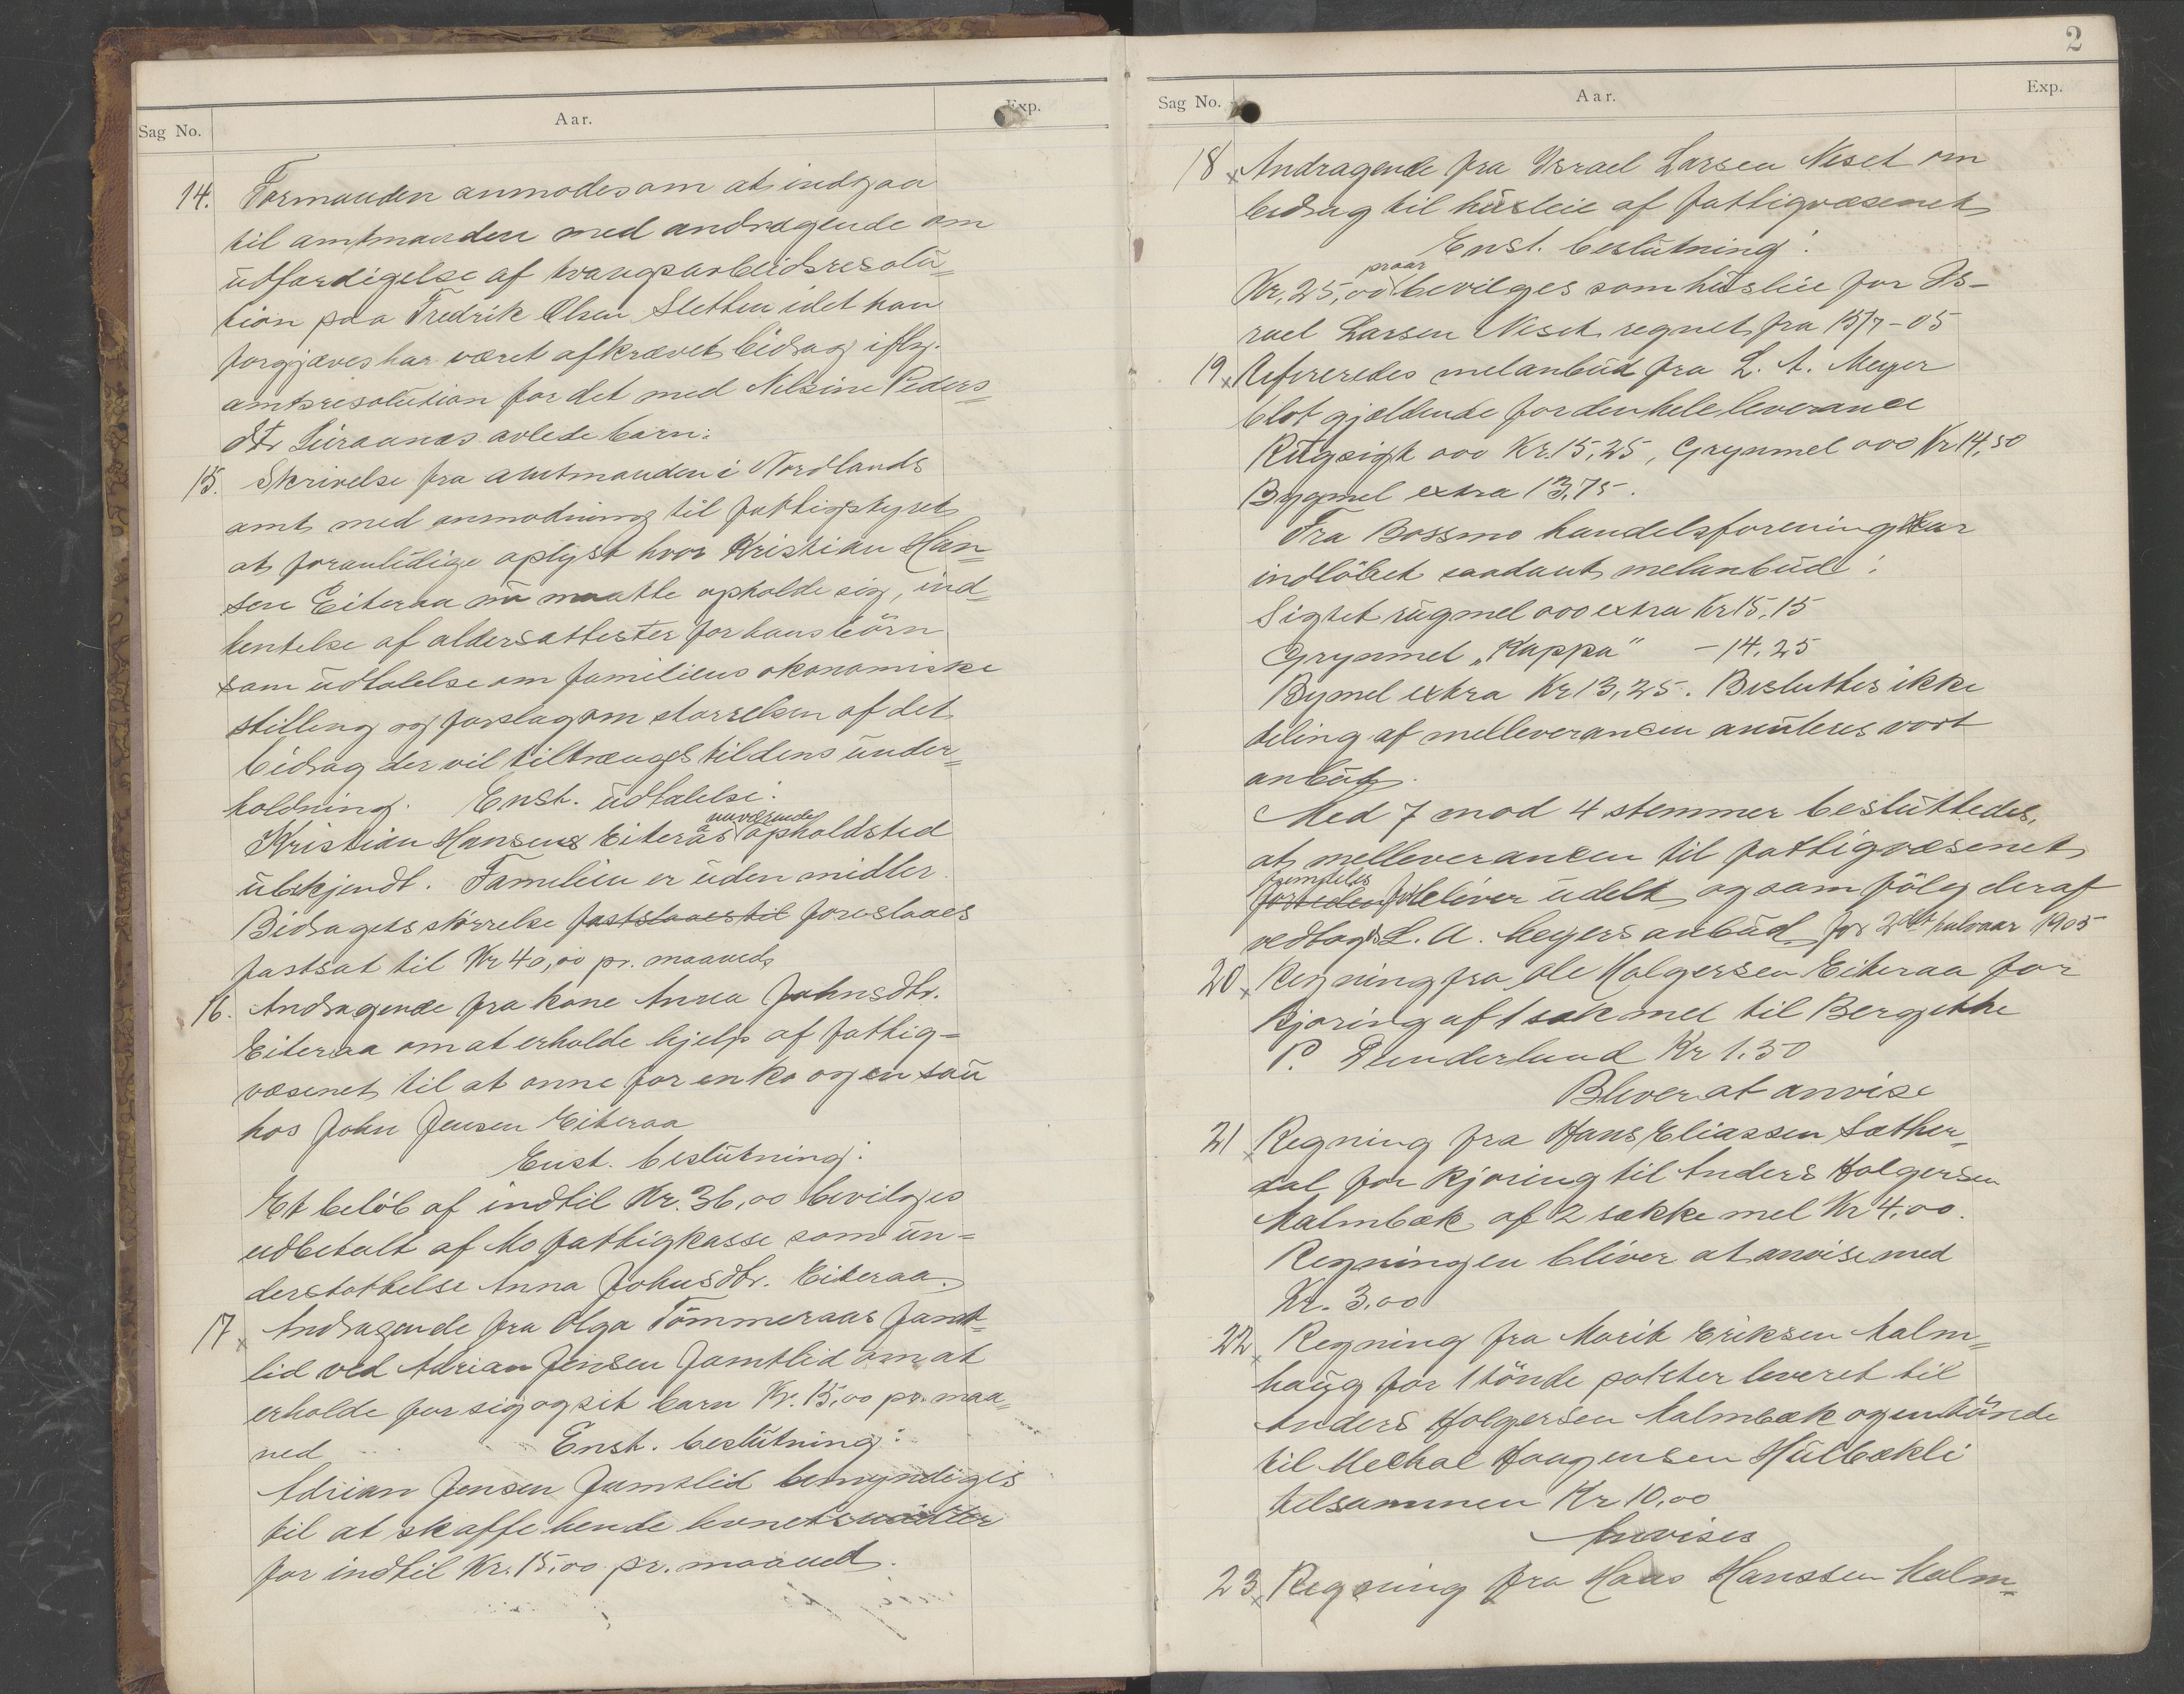 Sag No.
Aar.
Exp.
14. Formanden anmodes om at indgaa
til amtmanden med andragende om
udfærdigelse af tvangsarbeidsresolu=
tion paa Fredrik Olsen Sletten idet han
forgjæves har været afkrævet bidrag iflg.
amtsresolution for det med Nilsine Peders=
dtr avlede barn.
15. Skrivelse fra amtmanden i Nordlands
amt med anmodning til fattigstyret
at foranledige oplyst hvor Kristian Han=
sen Eiteraa nu maatte opholde sig, ind=
hentelse af aldersattester for hans børn
sam udtalelse om familiens økonomiske
stilling og forslag om størrelsen af det
bidrag der vil tiltrænges til dens under=
holdning. Enst. udtalelse:
nuværende
Kristian Hansens Eiterås opholdsted
ubekjendt. Familien er uden midler.
Bidragets størrelse fastslaaes til foreslaaes
fastsat til Kr 40,00 pr. maaned
16. Andragende fra kone Anna Johnsdtr.
Eiteraa om at erholde hjelp af fattig=
væsenet til at onne for en ko og en sau
hos John Jensen Eiteraa
Enst. beslutning:
Et beløb af indtil Kr. 36,00 bevilges
udbetalt af Mo fattigkasse som un=
derstøttelse Anna Johnsdtr. Eiteraa.
17 x Andragende fra Olga Tømmeraas Jamt=
lid ved Adrian Jensen Jamtlid om at
erholde for sig og sit barn Kr. 15,00 pr. maa=
ned Enst. beslutning:
Adrian Jensen Jamtlid bemyndiges
til at skaffe hende levnetsmidler
for indtil Kr. 15,00 pr. maaned.
2
Sag No.
Aar.
Exp.
18 x Andragende fra Israel Larsen Neset om
bidrag til husleie af fattigvæsenet
Enst. beslutning:
pr aar
Kr. 25,00 bevilges som husleie for Is-
rael Larsen Neset regnet fra 15/7-05
19 x Refereredes melanbud fra L. A. Meyer
blot gjældende for den hele leverance
Rugsigt 000 Kr. 15,25, Grynmel 000 Kr 14,50
Bygmel extra 13,75.
Fra Bossmo handelsforening har
indløbet saadant melanbud:
Sigtet rugmel 000 extra Kr 15,15
Grynmel „Kappa" - 14,25
Bymel extra Kr 13,25. Besluttes ikke
deling af melleverancen anuleres vort
anbud.
Med 7 mod 4 stemmer besluttedes,
at melleverancen til fattigvæsenet
fremdeles
bliver udelt og som følg deraf
vedtages L. A. Meyers anbud for 2det halvaar 1905
20 x Regning fra Ole Holgersen Eiteraa for
Kjøring af 1 sæk mel til Bergitthe
P. Dunderland Kr 1.50
Bliver at anvise
21 x Regning fra Hans Eliassen Sæther=
dal for kjøring til Anders Holgersen
Malmbæk af 2 sække mel Kr 4,00.
Regningen bliver at anvise med
Kr. 3,00
22 x Regning fra Marit Eriksen Malm=
haug for 1 tønde poteter leveret til
Anders Holgersen Malmbæk og en tønde
til Mechal Haagensen Hulbækli
tilsammen Kr 10,00
Anvises
23 x Regning fra Hans Hanssen Malm=